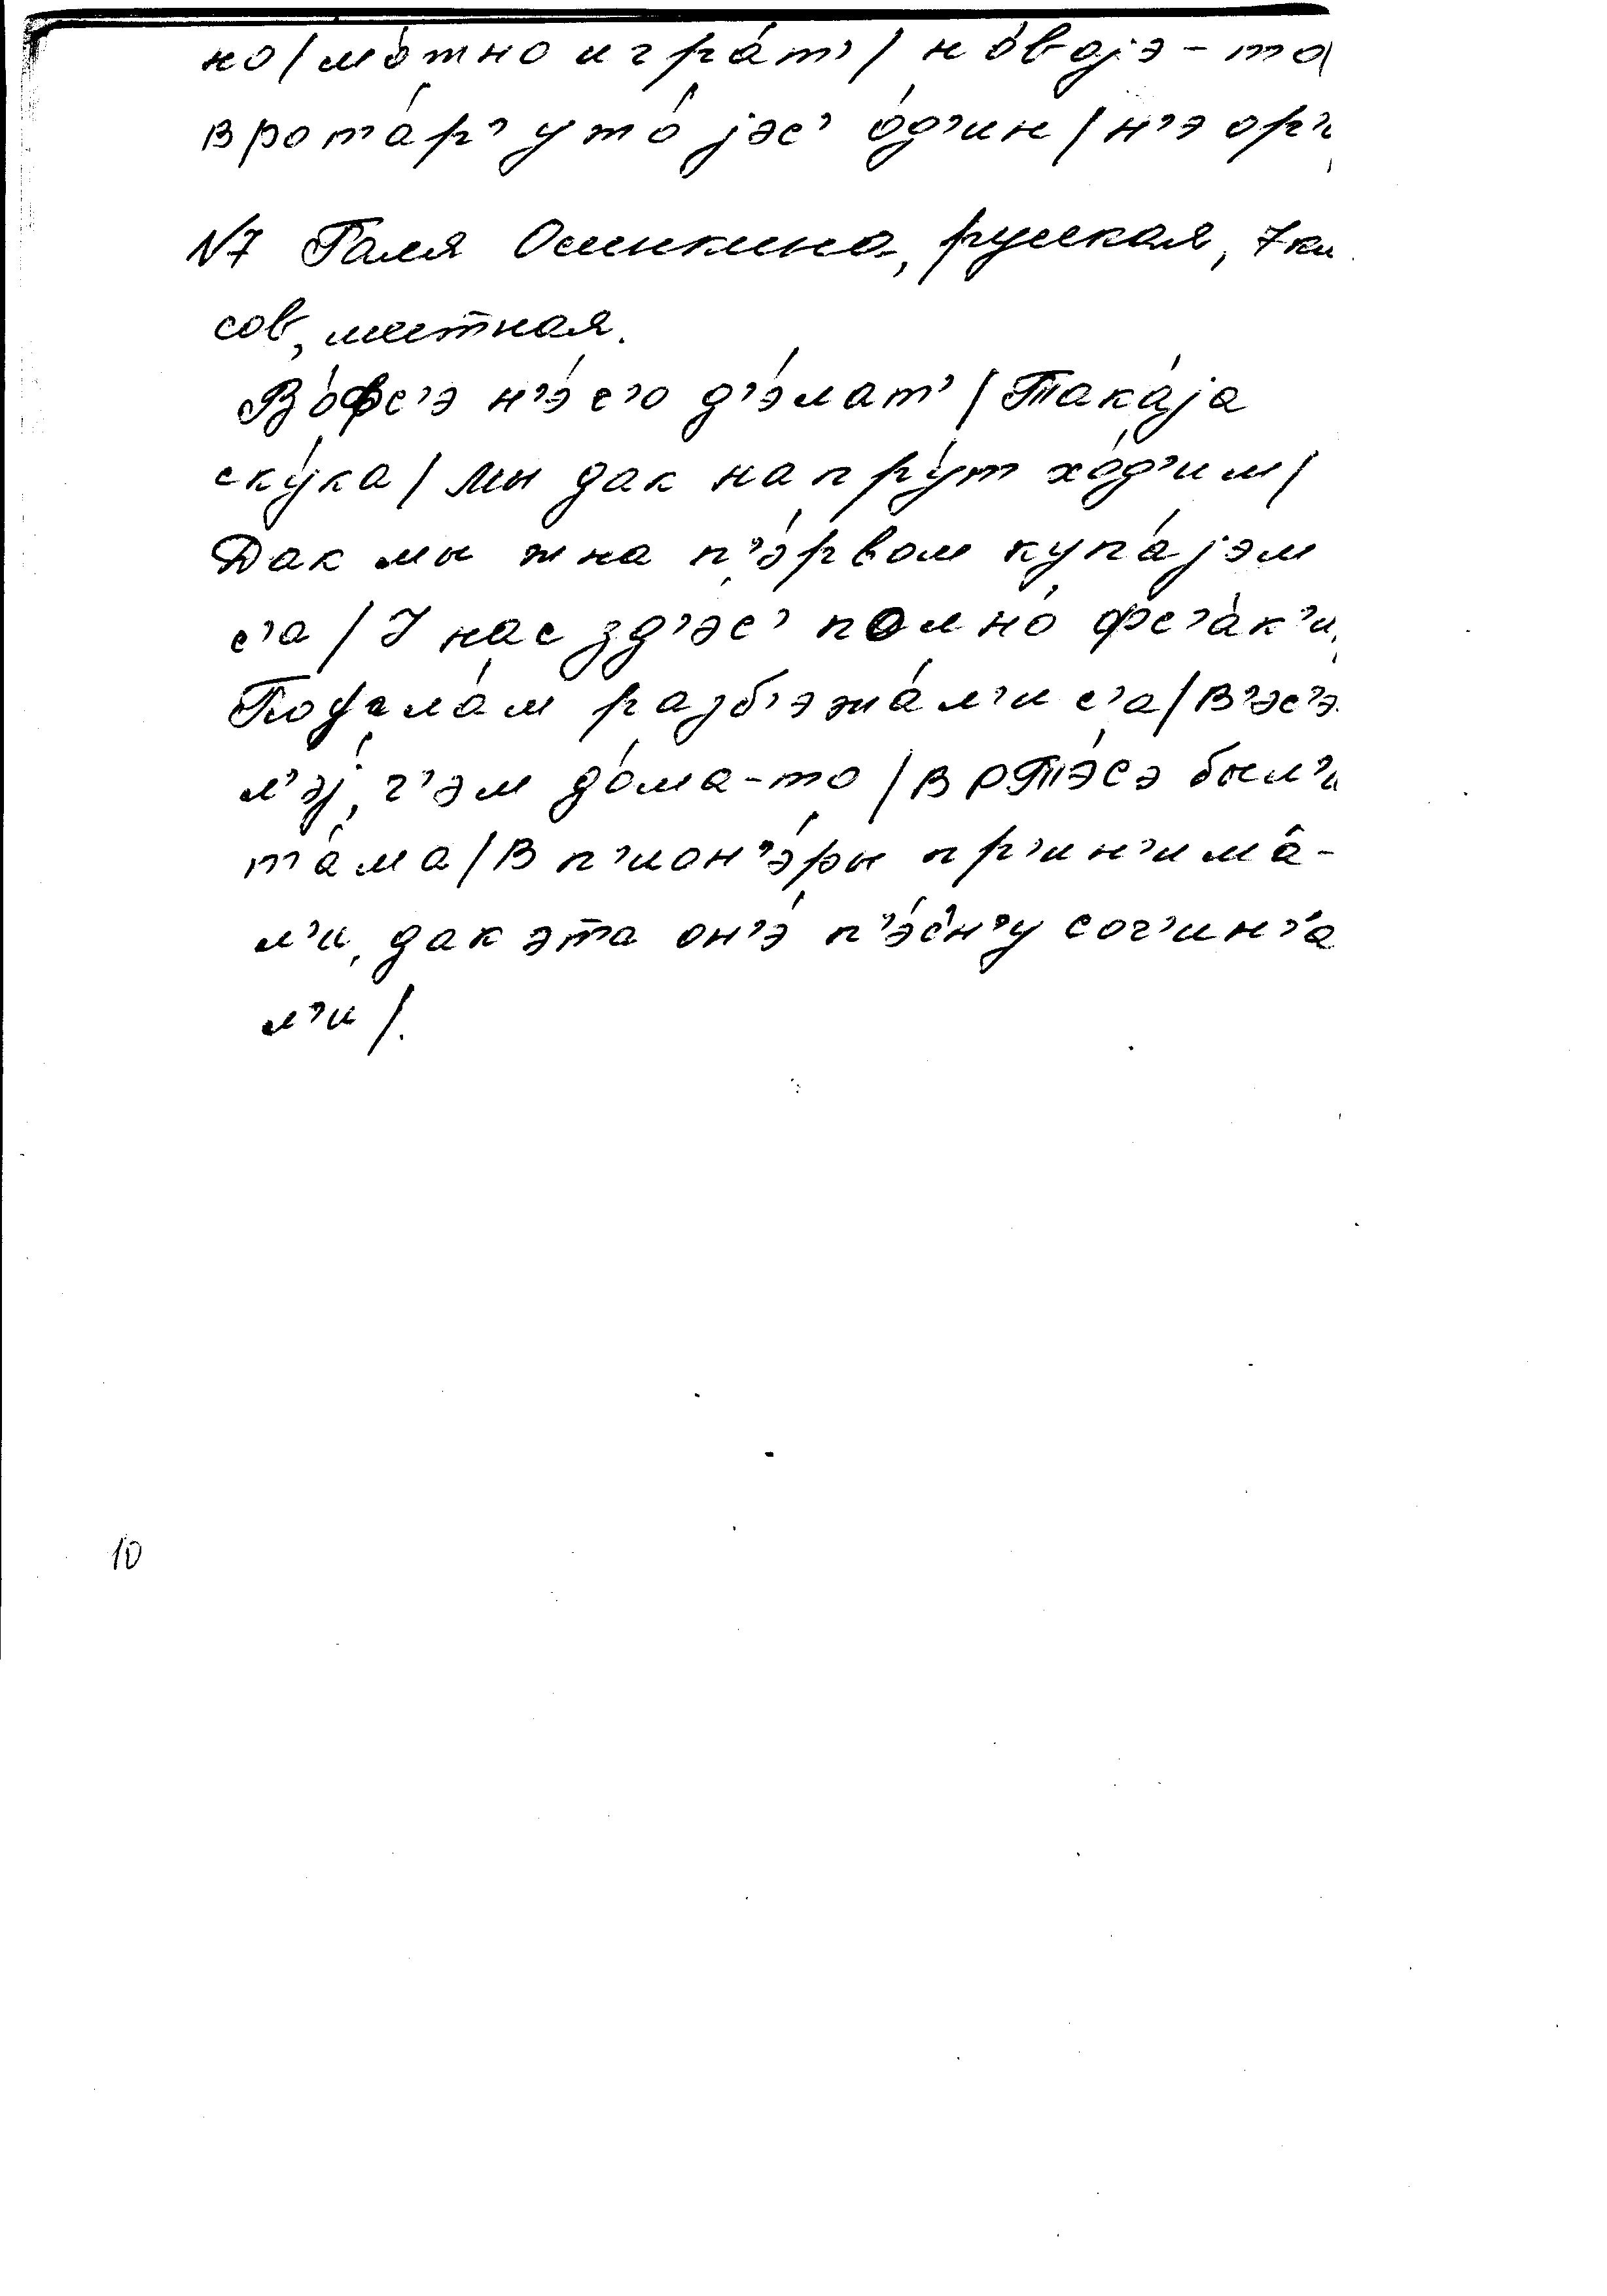 но/мо́тно игра́т'/ но́воjэ-то
вротар'у то́ jэс' о́д'ин/н'э ор'и
№7 Галя Осинкина, русская, 7кл
сов, местная.
Во́фс'э н'э́с'о д'э́лат'/Така́jа
ску́ка/мы дак на пру́т хо́д'им/
Дак мы ж на п'э́рвом купа́jэм
с'а/У нас зд'эс' полно́ фс'а́к'и
По угла́м разб'эжа́л'и с'а/В'эс'э
л'эj, ч'эм до́ма-то/В рТэ́сэ был'и
та́ма/В п'ион'э́ры пр'ин'има́-
л'и, дак эта он'э́ п'э́с'н'у соч'ин'а́
л'и/.
10